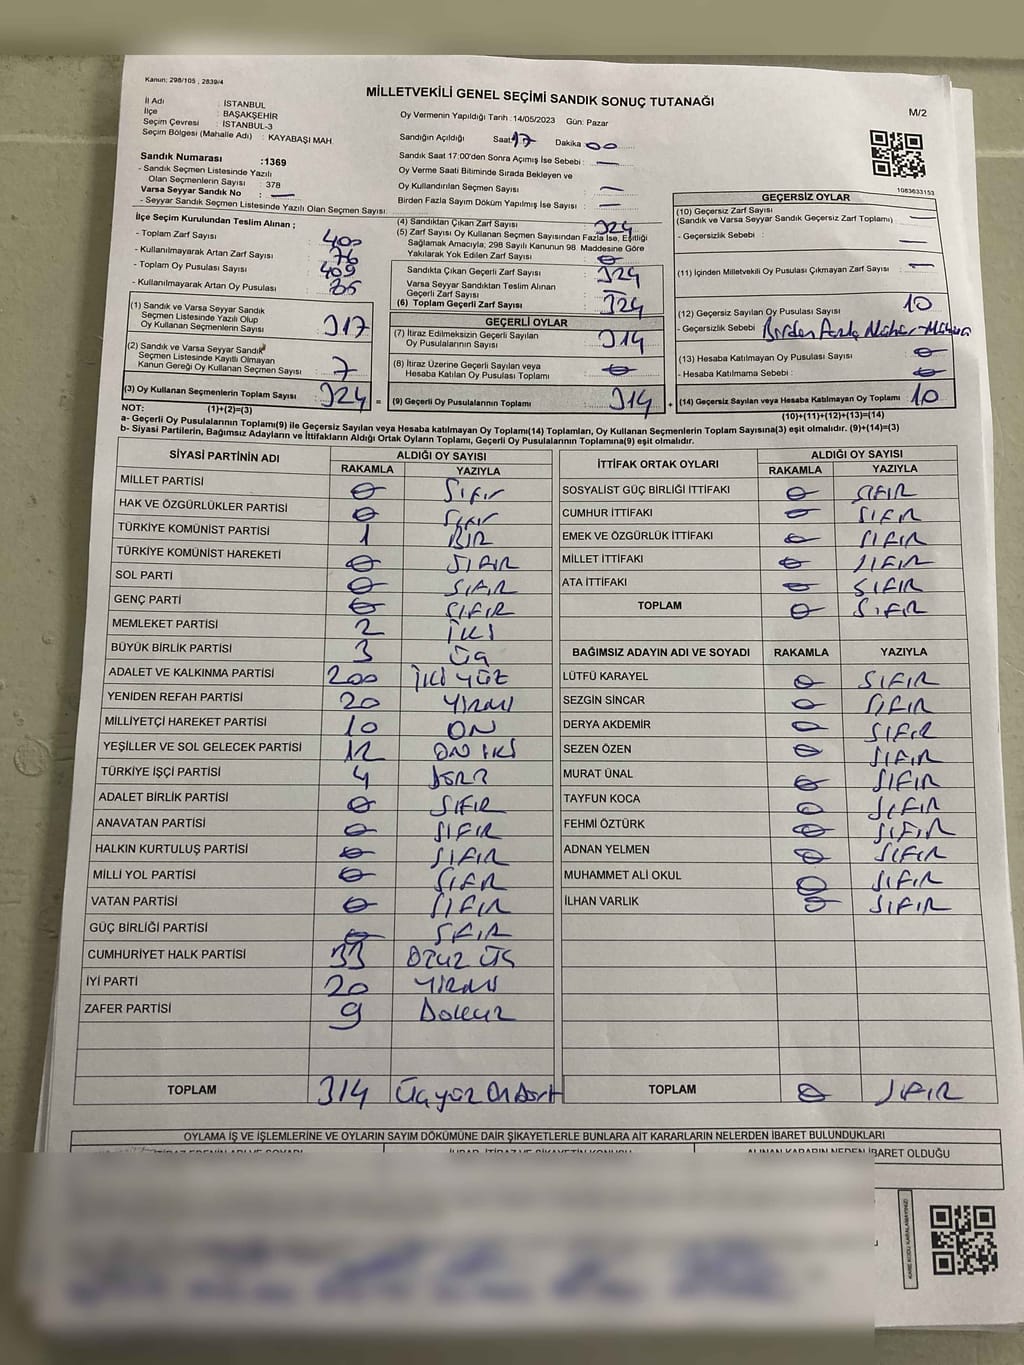 Kanun: 298/105 , 2839/4
MİLLETVEKİLİ GENEL SEÇİMİ SANDIK SONUÇ TUTANAĞI
M/2
İl Adı : İSTANBUL
İlçe : BAŞAKŞEHİR
Seçim Çevresi : İSTANBUL-3
Seçim Bölgesi (Mahalle Adı) : KAYABAŞI MAH.
Sandık Numarası :1369
- Sandık Seçmen Listesinde Yazılı
Olan Seçmenlerin Sayısı : 378
Varsa Seyyar Sandık No : —
- Seyyar Sandık Seçmen Listesinde Yazılı Olan Seçmen Sayısı:
Oy Vermenin Yapıldığı Tarih : 14/05/2023 Gün: Pazar
Sandığın Açıldığı Saat 17 Dakika 00
Sandık Saat 17:00'den Sonra Açılmış İse Sebebi : —
Oy Verme Saati Bitiminde Sırada Bekleyen ve
Oy Kullandırılan Seçmen Sayısı : —
Birden Fazla Sayım Döküm Yapılmış İse Sayısı : —
1083633153
İlçe Seçim Kurulundan Teslim Alınan ;
- Toplam Zarf Sayısı : 400
- Kullanılmayarak Artan Zarf Sayısı : 76
- Toplam Oy Pusulası Sayısı : 409
- Kullanılmayarak Artan Oy Pusulası : 85
(1) Sandık ve Varsa Seyyar Sandık
Seçmen Listesinde Yazılı Olup
Oy Kullanan Seçmenlerin Sayısı : 317
(2) Sandık ve Varsa Seyyar Sandık
Seçmen Listesinde Kayıtlı Olmayan
Kanun Gereği Oy Kullanan Seçmen Sayısı : 7
(3) Oy Kullanan Seçmenlerin Toplam Sayısı : 324 =
(4) Sandıktan Çıkan Zarf Sayısı : 324
(5) Zarf Sayısı Oy Kullanan Seçmen Sayısından Fazla İse, Eşitliği
Sağlamak Amacıyla; 298 Sayılı Kanunun 98. Maddesine Göre
Yakılarak Yok Edilen Zarf Sayısı : 0
Sandıkta Çıkan Geçerli Zarf Sayısı : 324
Varsa Seyyar Sandıktan Teslim Alınan
Geçerli Zarf Sayısı
(6) Toplam Geçerli Zarf Sayısı : 324
GEÇERLİ OYLAR
(7) İtiraz Edilmeksizin Geçerli Sayılan
Oy Pusulalarının Sayısı : 314
(8) İtiraz Üzerine Geçerli Sayılan veya
Hesaba Katılan Oy Pusulası Toplamı : 0
(9) Geçerli Oy Pusulalarının Toplamı : 314 +
GEÇERSİZ OYLAR
(10) Geçersiz Zarf Sayısı
(Sandık ve Varsa Seyyar Sandık Geçersiz Zarf Toplamı) : —
- Geçersizlik Sebebi : —
(11) İçinden Milletvekili Oy Pusulası Çıkmayan Zarf Sayısı : —
(12) Geçersiz Sayılan Oy Pusulası Sayısı : 10
- Geçersizlik Sebebi : Birden Fazla Mühür
(13) Hesaba Katılmayan Oy Pusulası Sayısı : 0
- Hesaba Katılmama Sebebi : 0
(14) Geçersiz Sayılan veya Hesaba Katılmayan Oy Toplamı : 10
NOT: (1)+(2)=(3)
(10)+(11)+(12)+(13)=(14)
a- Geçerli Oy Pusulalarının Toplamı(9) ile Geçersiz Sayılan veya Hesaba katılmayan Oy Toplamı(14) Toplamları, Oy Kullanan Seçmenlerin Toplam Sayısına(3) eşit olmalıdır. (9)+(14)=(3)
b- Siyasi Partilerin, Bağımsız Adayların ve İttifakların Aldığı Ortak Oyların Toplamı, Geçerli Oy Pusulalarının Toplamına(9) eşit olmalıdır.
SİYASİ PARTİNİN ADI ALDIĞI OY SAYISI
RAKAMLA YAZIYLA
MİLLET PARTİSİ 0 Sıfır
HAK VE ÖZGÜRLÜKLER PARTİSİ 0 Sıfır
TÜRKİYE KOMÜNİST PARTİSİ 1 BİR
TÜRKİYE KOMÜNİST HAREKETİ 0 SIFIR
SOL PARTİ 0 SIFIR
GENÇ PARTİ 0 SIFIR
MEMLEKET PARTİSİ 2 İKİ
BÜYÜK BİRLİK PARTİSİ 3 ÜÇ
ADALET VE KALKINMA PARTİSİ 200 İKİ YÜZ
YENİDEN REFAH PARTİSİ 20 YİRMİ
MİLLİYETÇİ HAREKET PARTİSİ 10 ON
YEŞİLLER VE SOL GELECEK PARTİSİ 12 ON İKİ
TÜRKİYE İŞÇİ PARTİSİ 4 DÖRT
ADALET BİRLİK PARTİSİ 0 SIFIR
ANAVATAN PARTİSİ 0 SIFIR
HALKIN KURTULUŞ PARTİSİ 0 SIFIR
MİLLİ YOL PARTİSİ 0 SIFIR
VATAN PARTİSİ 0 SIFIR
GÜÇ BİRLİĞİ PARTİSİ 0 SIFIR
CUMHURİYET HALK PARTİSİ 33 OTUZ ÜÇ
İYİ PARTİ 20 YİRMİ
ZAFER PARTİSİ 9 DOKUZ
TOPLAM 314 Üçyüz On Dört
İTTİFAK ORTAK OYLARI ALDIĞI OY SAYISI
RAKAMLA YAZIYLA
SOSYALİST GÜÇ BİRLİĞİ İTTİFAKI 0 SIFIR
CUMHUR İTTİFAKI 0 SIFIR
EMEK VE ÖZGÜRLÜK İTTİFAKI 0 SIFIR
MİLLET İTTİFAKI 0 SIFIR
ATA İTTİFAKI 0 SIFIR
TOPLAM 0 SIFIR
BAĞIMSIZ ADAYIN ADI VE SOYADI RAKAMLA YAZIYLA
LÜTFÜ KARAYEL 0 SIFIR
SEZGİN SİNCAR 0 SIFIR
DERYA AKDEMİR 0 SIFIR
SEZEN ÖZEN 0 SIFIR
MURAT ÜNAL 0 SIFIR
TAYFUN KOCA 0 SIFIR
FEHMİ ÖZTÜRK 0 SIFIR
ADNAN YELMEN 0 SIFIR
MUHAMMET ALİ OKUL 0 SIFIR
İLHAN VARLIK 0 SIFIR
TOPLAM 0 SIFIR
OYLAMA İŞ VE İŞLEMLERİNE VE OYLARIN SAYIM DÖKÜMÜNE DAİR ŞİKAYETLERLE BUNLARA AİT KARARLARIN NELERDEN İBARET BULUNDUKLARI
ALINAN KARARIN NEDEN İBARET OLDUĞU